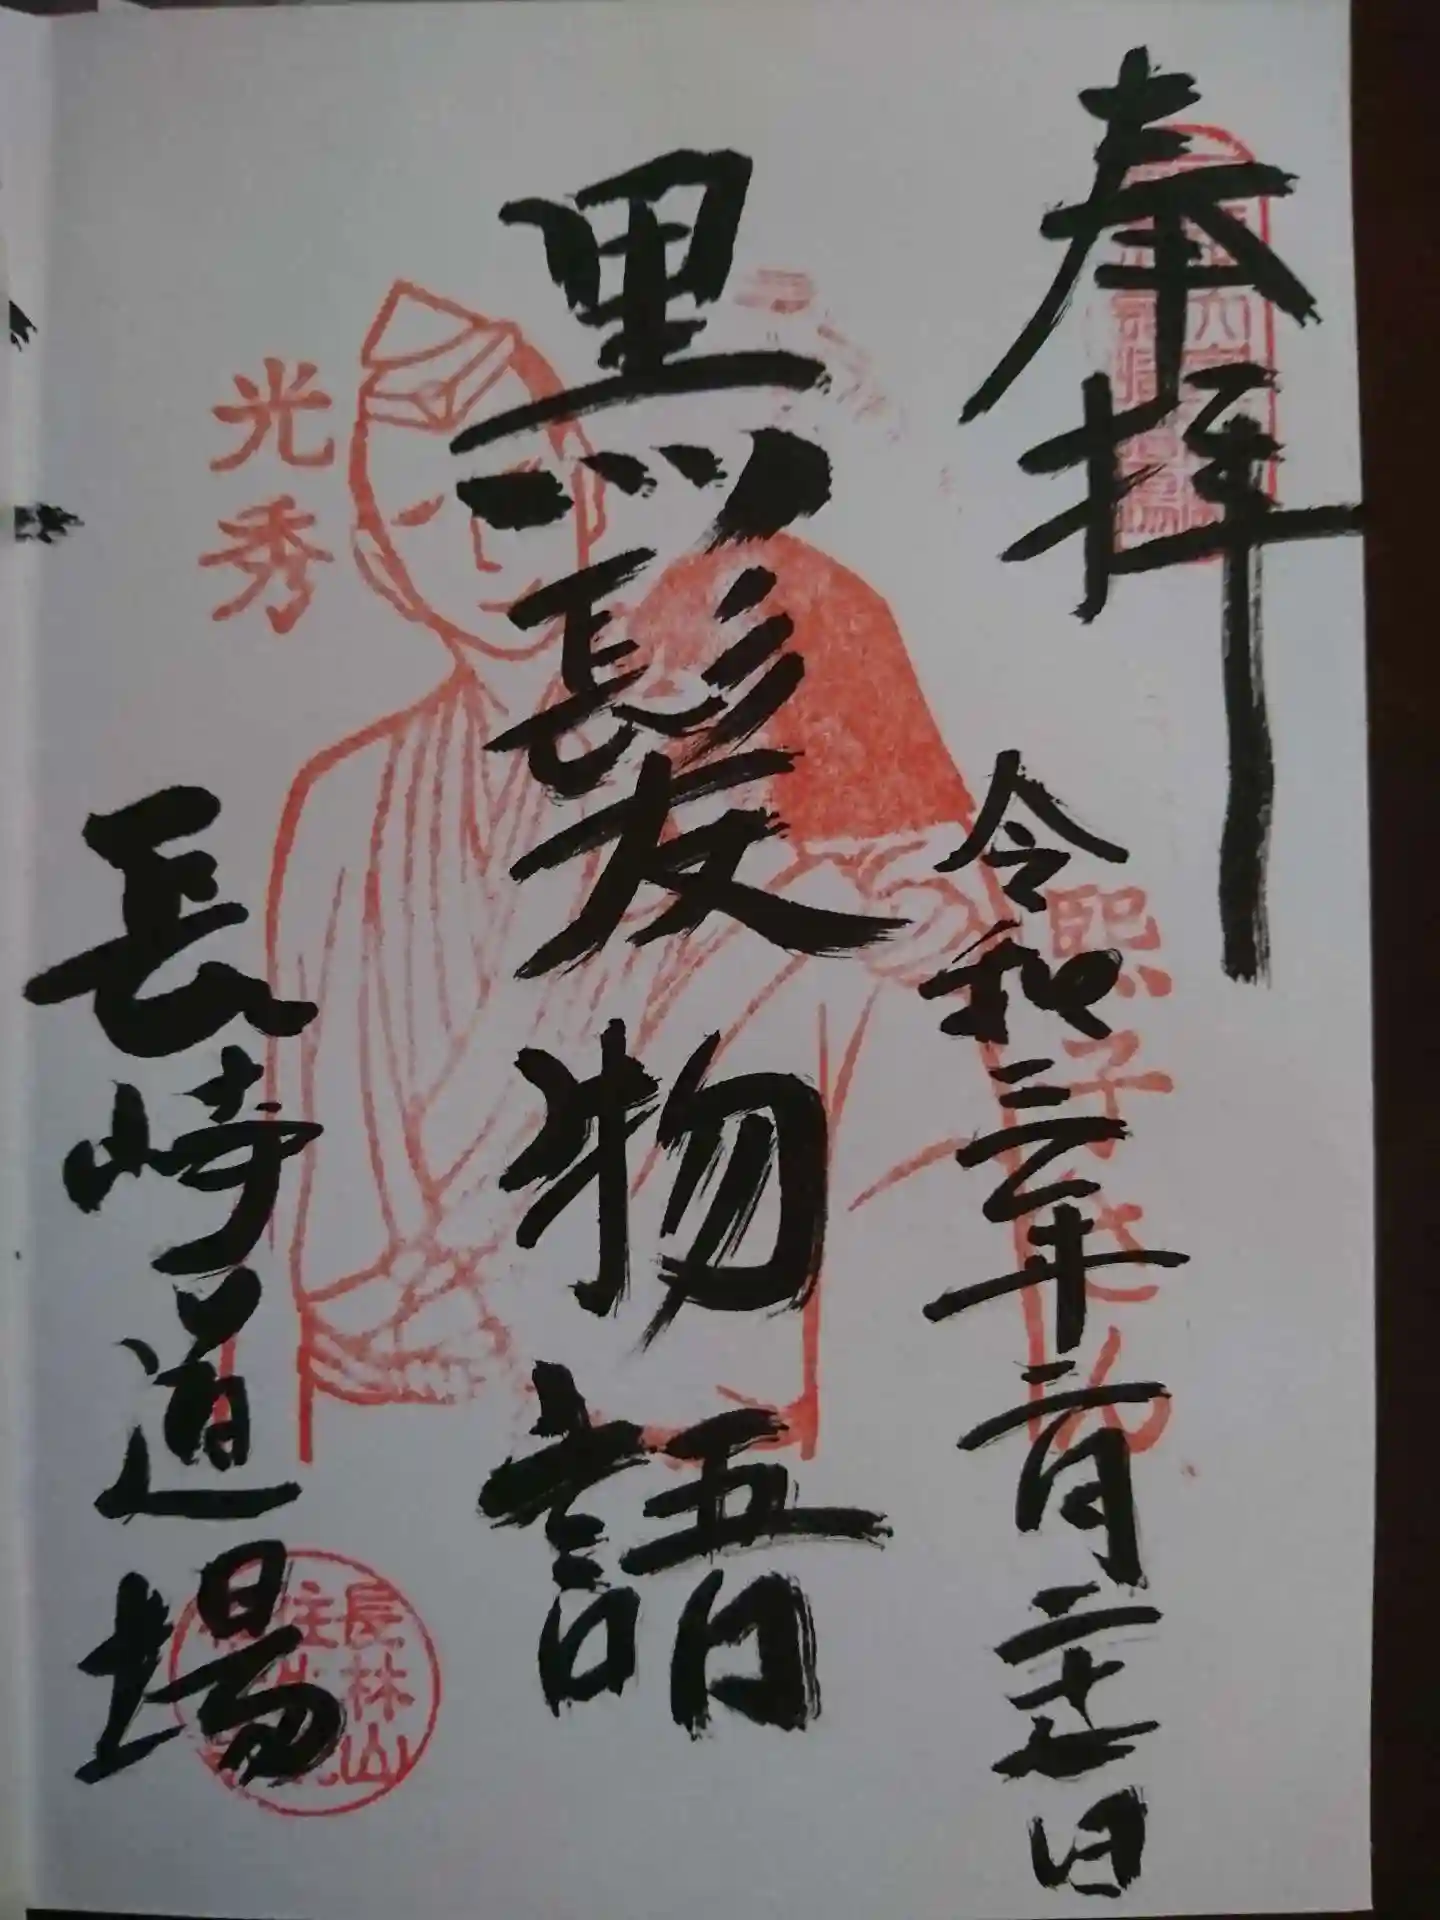 奉拝
令和三年二月二十七日
熙子さん
黒髪物語
光秀
長崎道場
長林山